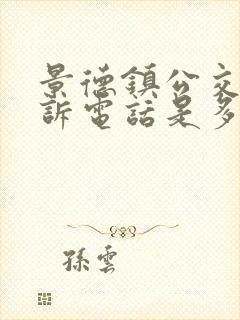 景德鎮公交
訴電話是多
孫雲